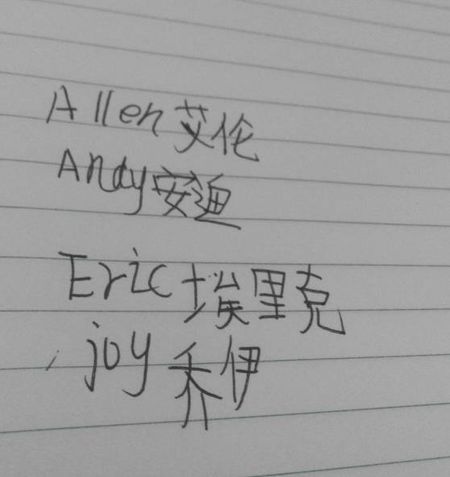 Allen 艾伦
Andy 安迪
Eric 埃里克
joy 乔伊